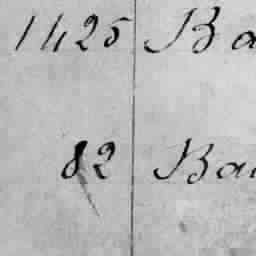 1425 Ba
82 Bau